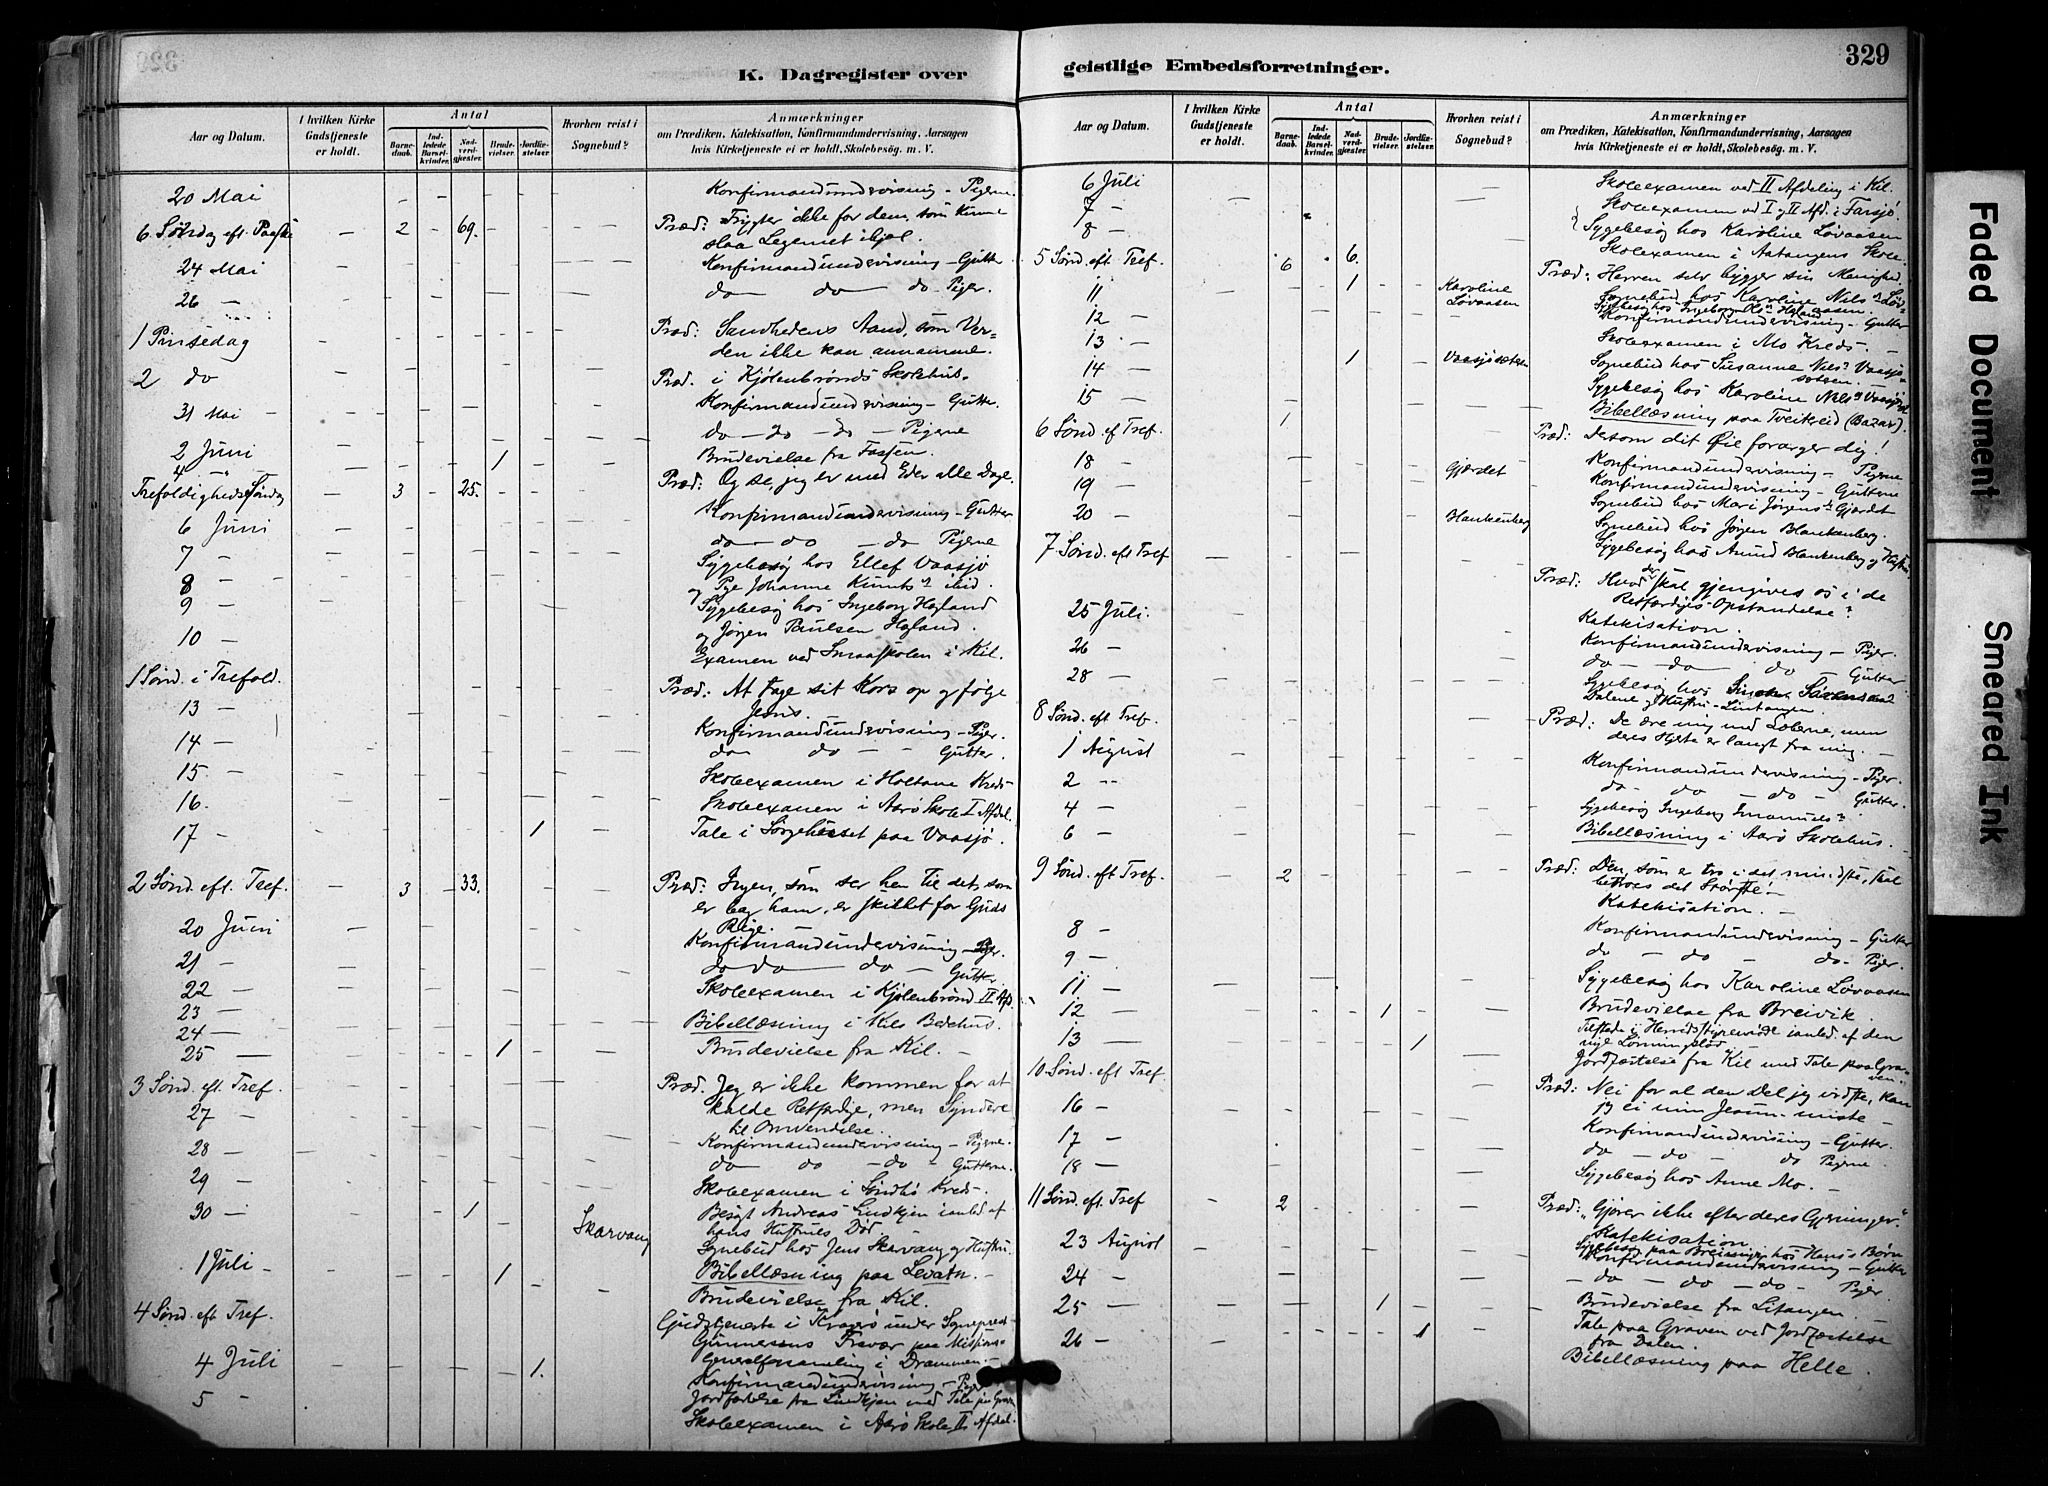 329
K. Dagregister over geistlige Embedsforretninger.
Aar og Datum.
I hvilken Kirke Gudstjeneste er holdt.
Antal
Barnedaab.
Indledede Barselkvinder.
Nadverdgjæster.
Brudevielser.
Jordfæstelser.
Hvorhen reist i Sognebud?
Anmærkninger
om Prædiken, Katekisation, Konfirmandundervisning, Aarsagen
hvis Kirketjeneste ei er holdt, Skolebesög. m. V.
20 Mai — Konfirmandundervisning – Pigerne.
6. Søndag eft. Paaske — 2 — 69. Præd: Frygter ikke for dem, som kunne
slaa Legemet ihjel.
24 Mai — Konfirmandundervisning – Gutter
26 — do do do Piger.
1 Pinsedag Præd: Sandhedens Aand, som Ver-
den ikke kan annamme.
2 do Præd. i Kjølenbrønds Skolehus.
31 Mai — Konfirmandundervisning – Gutter.
2 Juni do – do – do – Pigerne
4 — 1 Brudevielse fra Fossen.
Trefoldigheds Søndag — 3 — 25. Præd: Og se, jeg er med Eder alle Dage.
6 Juni Konfirmandundervisning – Gutter
7 — do – do – do Pigerne
8 — Sygebesøg hos Ellef Vaasjø
og Pge Johanne Knuts ibid.
9 — Sygebesøg hos Ingeborg Høgland
og Jørgen Paulsen Høgland.
10 — Examen ved Smaaskolen i Kil.
1 Sønd. i Trefold. Præd: At tage sit Kors op og følge
Jesus.
13 — Konfirmandundervisning – Piger.
14 — do do – Gutter.
15 — Skoleexamen i Holtane Kreds
16. Skoleexamen i Aarø Skole I Afdel.
17 — 1 — Tale i Sørgehuset paa Vaasjø.
2 Sønd. eft. Tref. — 3 — 33. Præd: Ingen, som ser hen til det, som
er bag ham, er skikket for Guds
Rige.
20 Juni Konfirmandundervisning – Piger.
21 — do do do – Gutter
22 — Skoleexamen i Kjølenbrønd II Afd.
23 —
24 — Bibellæsning i Kils Bedehus.
25 — 1 — Brudevielse fra Kil. —
3 Sønd. eft. Tref. Præd. Jeg er ikke kommen for at
kalde Retfærdige, men Syndere
til Omvendelse.
27 — Konfirmandundervisning – Pigerne.
28 — do do – do – Gutterne.
29 — Skoleexamen i Sandbø Kreds.
30 — 1 — Skarvang Besøgt Andreas Lindkjen ianled af
hans Hustrues Død.
Sognebud hos Jens Skarvang og Hustru.
1 Juli — 1 — Bibellæsning paa Levatn. —
Brudevielse fra Kil.
4 Sønd. eft Tref. Gudstjeneste i Kragerø under Sogneprest
Gunnersens Fravær paa Missions-
Generalforsamling i Drammen. —
4 Juli — 1. Konfirmandundervisning – Piger
Jordfæstelse fra Lindkjen med Tale paa Graven
5 — Skoleexamen i Aarø Skole II Afdel.
Aar og Datum.
I hvilken Kirke Gudstjeneste er holdt.
Antal
Barnedaab.
Indledede Barselkvinder.
Nadverdgjæster.
Brudevielser.
Jordfæstelser.
Hvorhen reist i Sognebud?
Anmærkninger
om Prædiken, Katekisation, Konfirmandundervisning, Aarsagen
hvis Kirketjeneste ei er holdt, Skolebesög. m. V.
6 Juli — Skoleexamen ved II Afdeling i Kil.
7 — Skoleexamen ved I og II Afd. i Farsjø
8 — Sygebesøg hos Karoline Løvaasen
Skoleexamen i Aatangens Skole.
5 Sønd. eft. Tref. 6 6. Præd: Herren selv bygger sin Menighed.
11 1 Karoline Løvaasen Sognebud hos Karoline Nils
Sygebesøg hos Ingeborg Høgland
12 — Konfirmandundervisning – Gutter
13 — Skoleexamen i Mo Kreds. —
14 — 1 — Vaasjøsæteren Sognebud hos Susanne Nils Vaasjø-
sæteren
15 — Sygebesøg hos Karoline Nils Vaasjøsæt.
Bibellæsning paa Tveitereid (Bazar).
6 Sønd. ef Tref. 1 Præd: Dersom dit Øie forarger dig!
18 — Konfirmandundervisning – Pigerne
19 — Gjærdet Konfirmandundervisning – Gutterne
Sognebud hos Mari Jørgens Gjærdet
20 — Blankenberg Sognebud hos Jørgen Blankenberg.
Sygebesøg hos Amund Blankenberg og Hustru.
7. Sønd. eft Tref — Præd: Hvad der skal gjengives os i de
Retfærdiges Opstandelse?
Katekisation.
25 Juli. Konfirmandundervisning – Piger.
26 — do – do do – Gutter
28 — Sygebesøg hos
Dalene og Hustru – Lintangen.
8 Sønd. eft. Tref. Præd: De ære mig med Læberne, men
deres Hjerte er langt fra mig. —
1 August Konfirmandundervisning – Piger.
2 — do – do – do – Gutter.
4 — Sygebesøg Ingeborg Immanuels
6 — Bibellæsning i Aarø Skolehus. —
9 Sønd. eft Tref. — 2 Præd: Den, som er tro i det mindste, skal
betroes det Største –
Katekisation. —
8 — Konfirmandundervisning – Gutter
9 — do – do – do – Piger.
11 — Sygebesøg hos Karoline Løvaasen
12 — 1 — Brudevielse fra Breivik.
Tilstede i Herredsstyremøde ianled. af den
nye Lønningslov —
13 — 1 Jordfæstelse fra Kil med Tale paa Gra-
ven.
10. Sønd. eft Tref. Præd: Nei for al den Del jeg vidste, kan
jeg ei min Jesum miste —
16 — Konfirmandundervisning – Gutter.
17 — do – do – do Pigerne.
18 — Sygebesøg hos Anne Mo. —
11 Sønd. eft. Tref — 2 Præd: "Gjører ikke efter deres Gjerninger."
Katekisation
Sygebesøg paa hos Hans's Børn
23 August Konfirmandundervisning – Gutter
24 — – do – do – do – Piger.
25 — 1 — Brudevielse fra Litangen.
26 — 1 Tale paa Graven ved Jordfæstelse
fra Dalen.
Bibellæsning paa Helle.
Faded Document
Smeared Ink